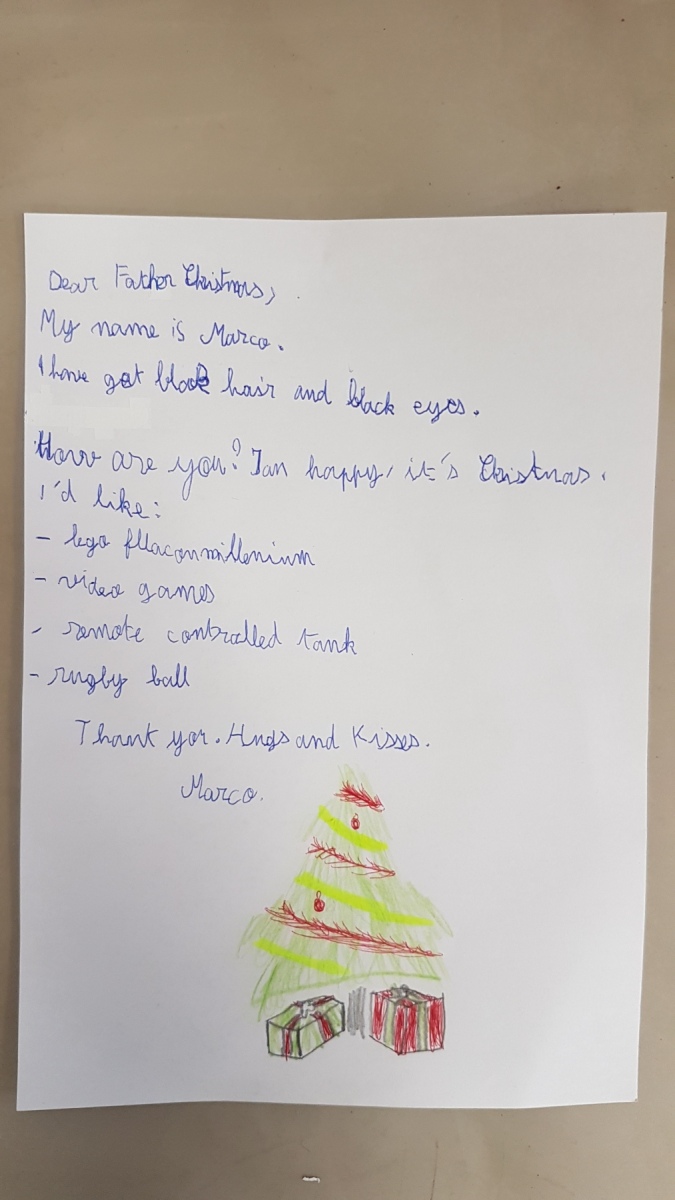 Dear Father Christmas,
My name is Marco.
I have got black hair and black eyes.
How are you? I am happy, it's Christmas.
I'd like:
- lego fllaconmillenium
- video games
- remote controlled tank
- rugby ball
Thank you. Hugs and Kisses.
Marco.